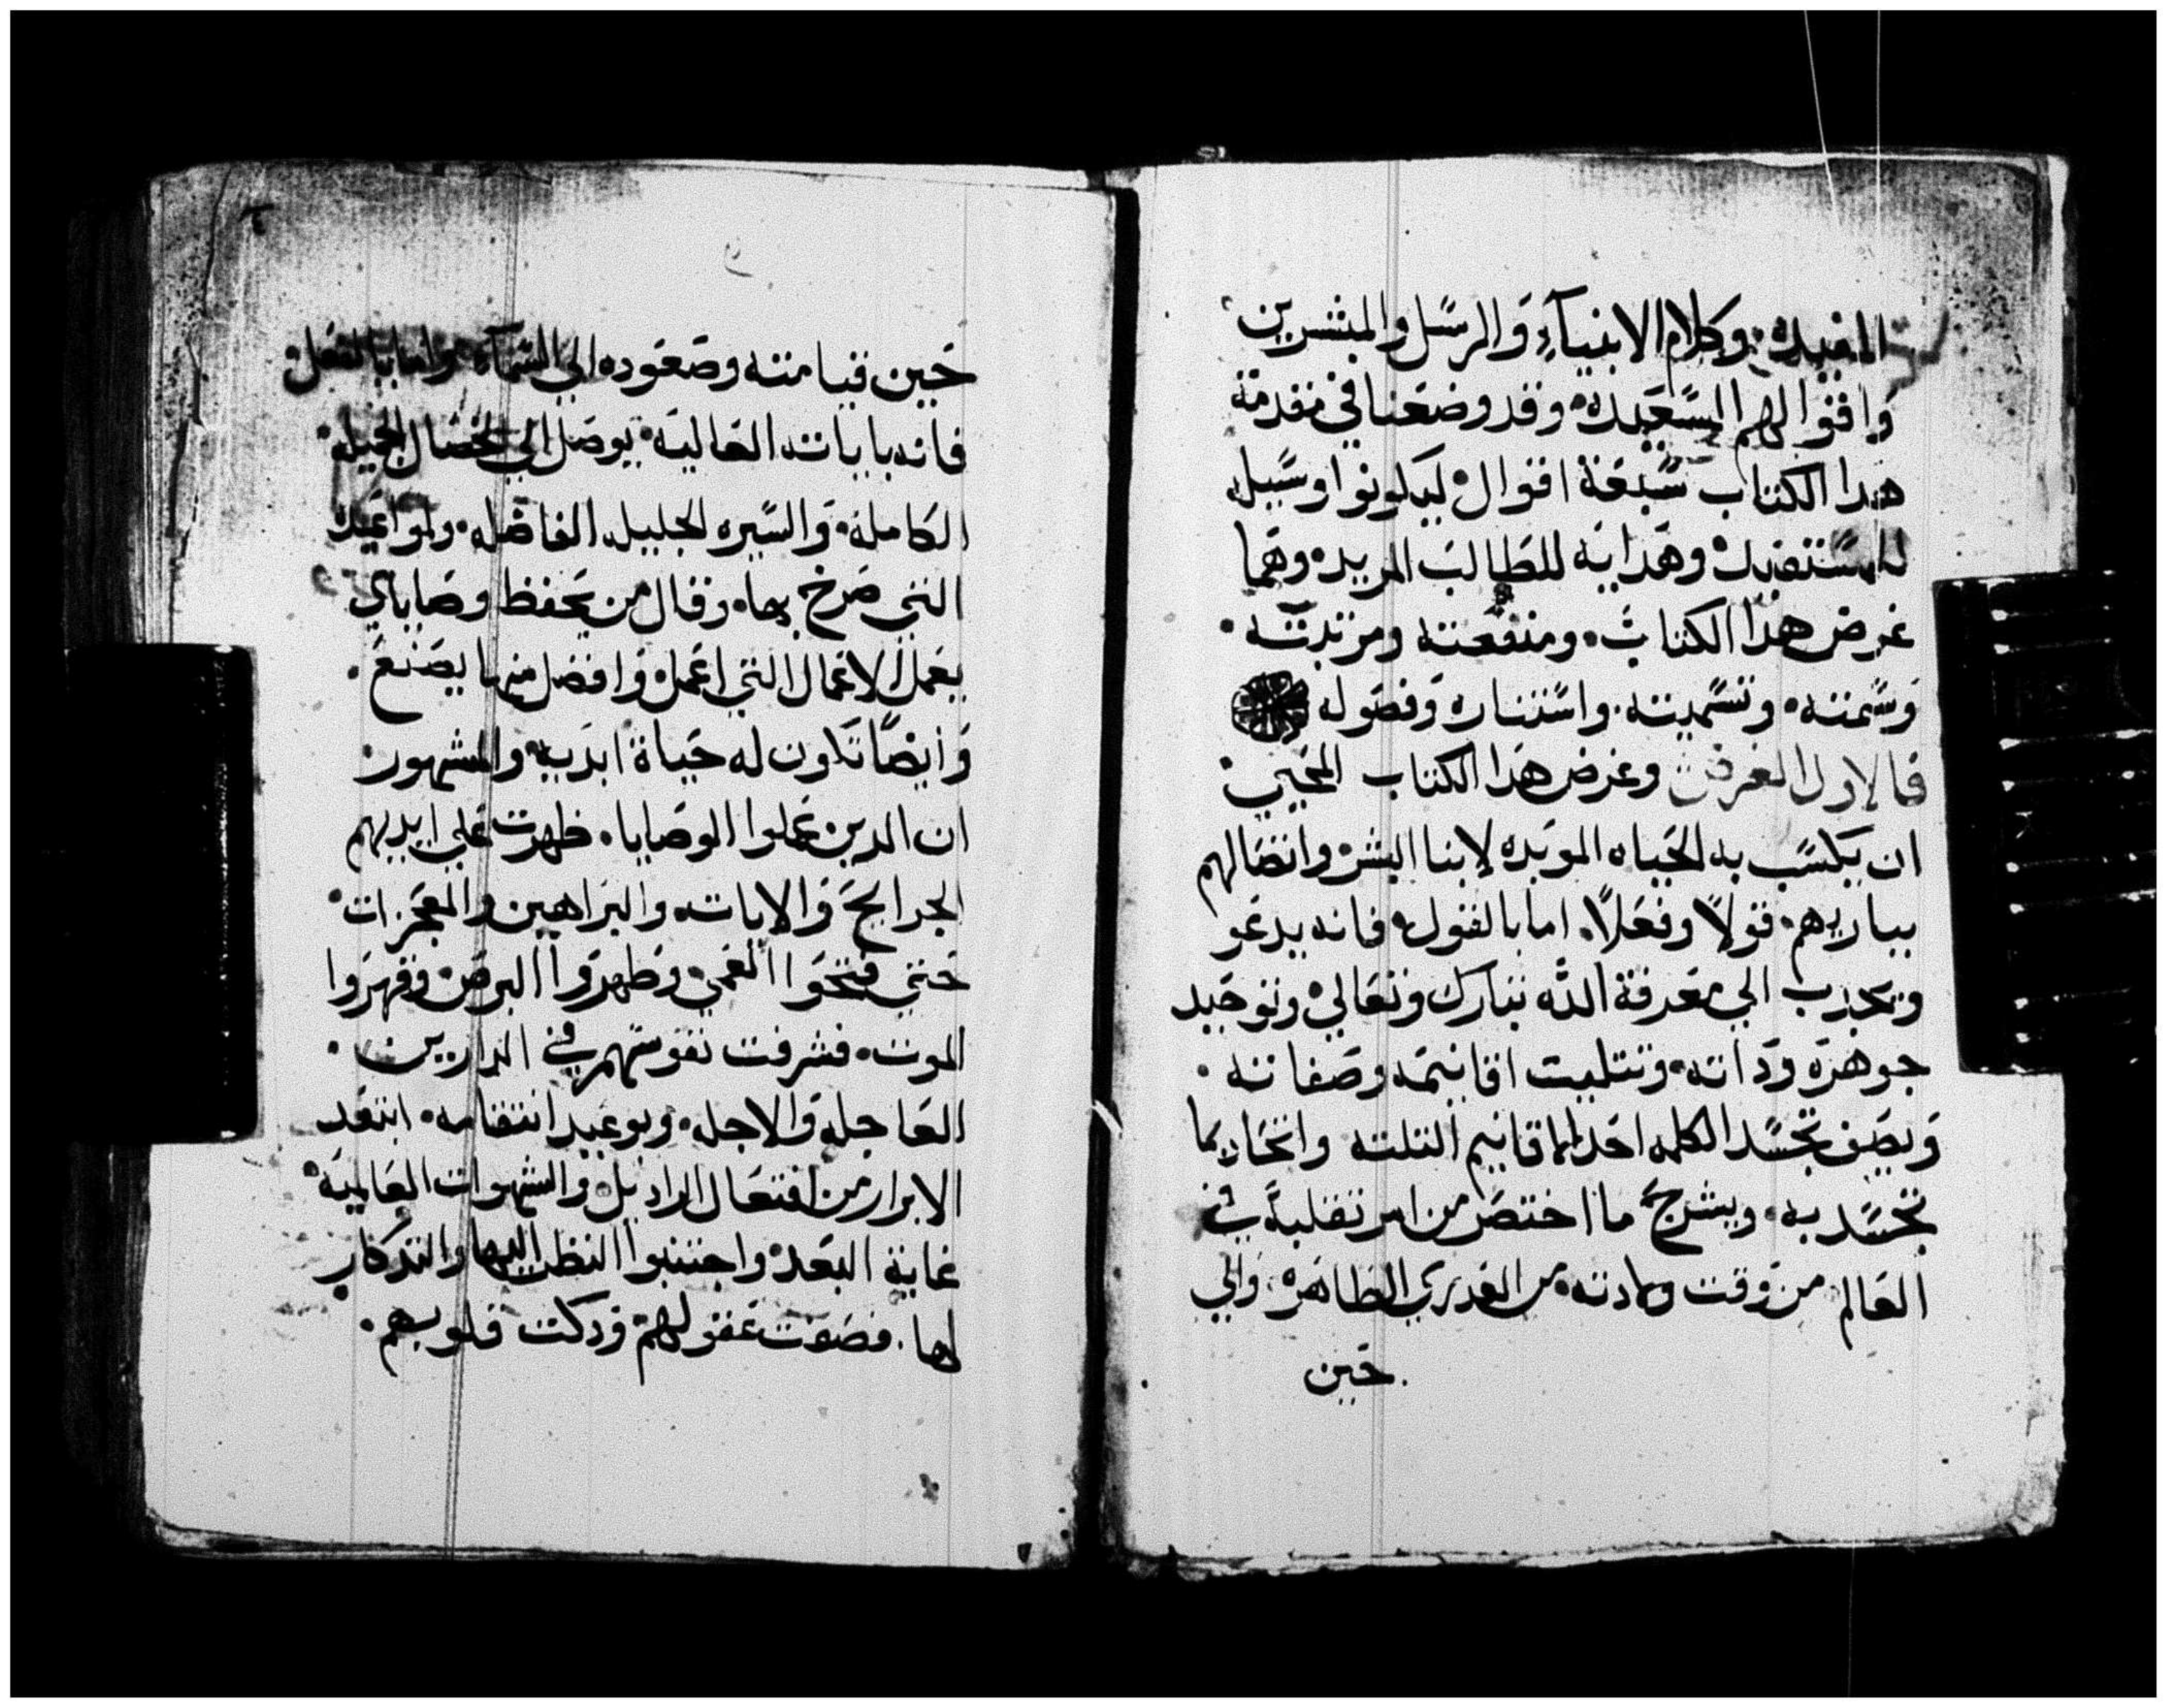 المفيده. وكلام الانبياء والرسل والمبشرين
واقوالهم السعيده. وقد وضعنا في مقدمة
هدا الكتاب سبعة اقوال ليكونوا وسيله
للمستفيد. وهدايه للطالب المريد. وهما
غرض هدا الكتاب. ومنفعته ومرتبته.
وسمته. وتسميته. واستناره وفصوله
فالاول الغرض وغرض هدا الكتاب المجيد
ان يكسب به الحياه الموبده لابنا البشر واتصالهم
بباريهم. قولاً وفعلاً. اما بالقول. فانه يدعو
ويجدب الي معرفة الله تبارك وتعالي وتوحيد
جوهره وداته. وتتليت اقانيمه وصفاته.
ويصف تجسد الكلمه احد الاقانيم التلته واتحاد بما
تجسد به. ويشرح ما اختص من امر تقلبه في
العالم من وقت ولادته من العدري الطاهره والي
حين
حين قيامته وصعوده الي السماء. واما بالفعل
فانه باياته العاليه. يوصل الي الخصال الجميله.
الكامله. والسيره الجليله الفاضله. ولمواعيد
التي صرخ بها. وقال من يحفظ وصاياي
يعمل الاعمال التي اعمل. وافضل منها يصنع.
وايضاً تكون له حياة ابديه والمشهور.
ان الدين عملوا الوصايا. ظهرت علي ايديهم
الجرايح والايات. والبراهين والمعجزات.
حتي فتحوا العمي وطهروا البرص وقهروا
الموت. فشرفت نفوسهم في الدارين.
العاجله والاجله. وبوعيد انتقامه. ابتعد
الابرار من افتعال الرادايل والشهوات العالميه.
غاية البعد. واجتنبوا النظر اليها والتدكار
لها. فصفت عقولهم ودكت قلوبهم.